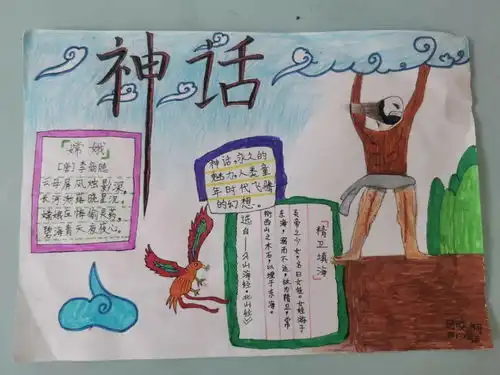 神话
「嫦娥」
[唐]李商隐
云母屏风烛影深,
长河渐落晓星沉。
嫦娥应悔偷灵药,
碧海青天夜夜心。
神话,永久的
魅力,人类童
年时代飞腾
的幻想。
「精卫填海」
炎帝之少女,名曰女娃。女娃游于
东海,溺而不返,故为精卫,常
衔西山之木石,以堙于东海。
选自——《山海经·北山经》